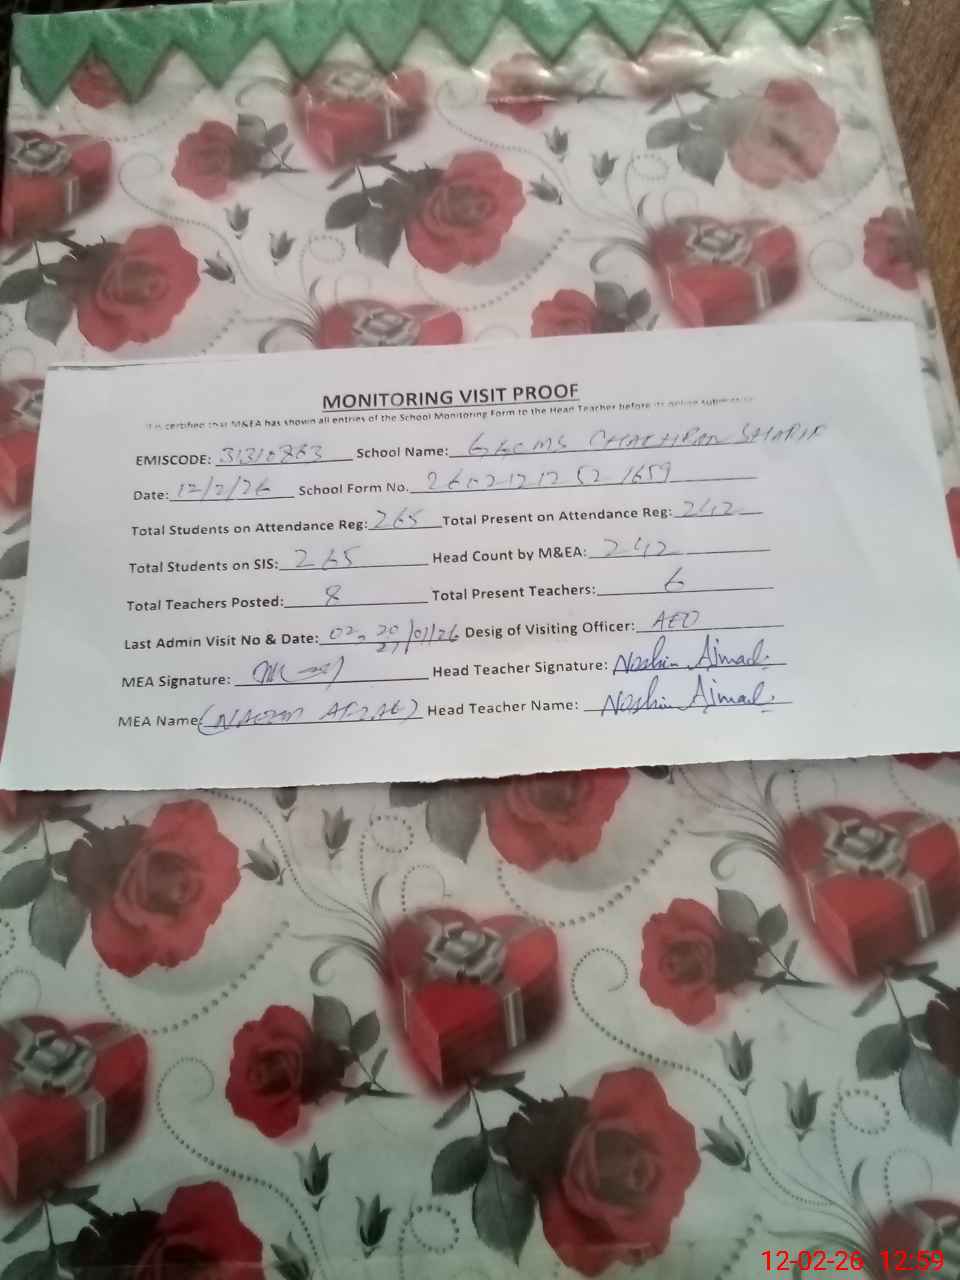 MONITORING VISIT PROOF
It is certified that M&EA has shown all entries of the School Monitoring Form to the Head Teacher before its online submission
EMISCODE: 31310883 School Name: CHACHRAN SHARIF
Date: 12/2/26 School Form No.
Total Students on Attendance Reg: 265 Total Present on Attendance Reg: 242
Total Students on SIS: 265 Head Count by M&EA: 242
Total Teachers Posted: 8 Total Present Teachers: 6
Last Admin Visit No & Date: 02, Desig of Visiting Officer: AEO
MEA Signature: Head Teacher Signature: Noshin Ajmad
MEA Name Head Teacher Name: Noshin Ajmad
12-02-26 12:59